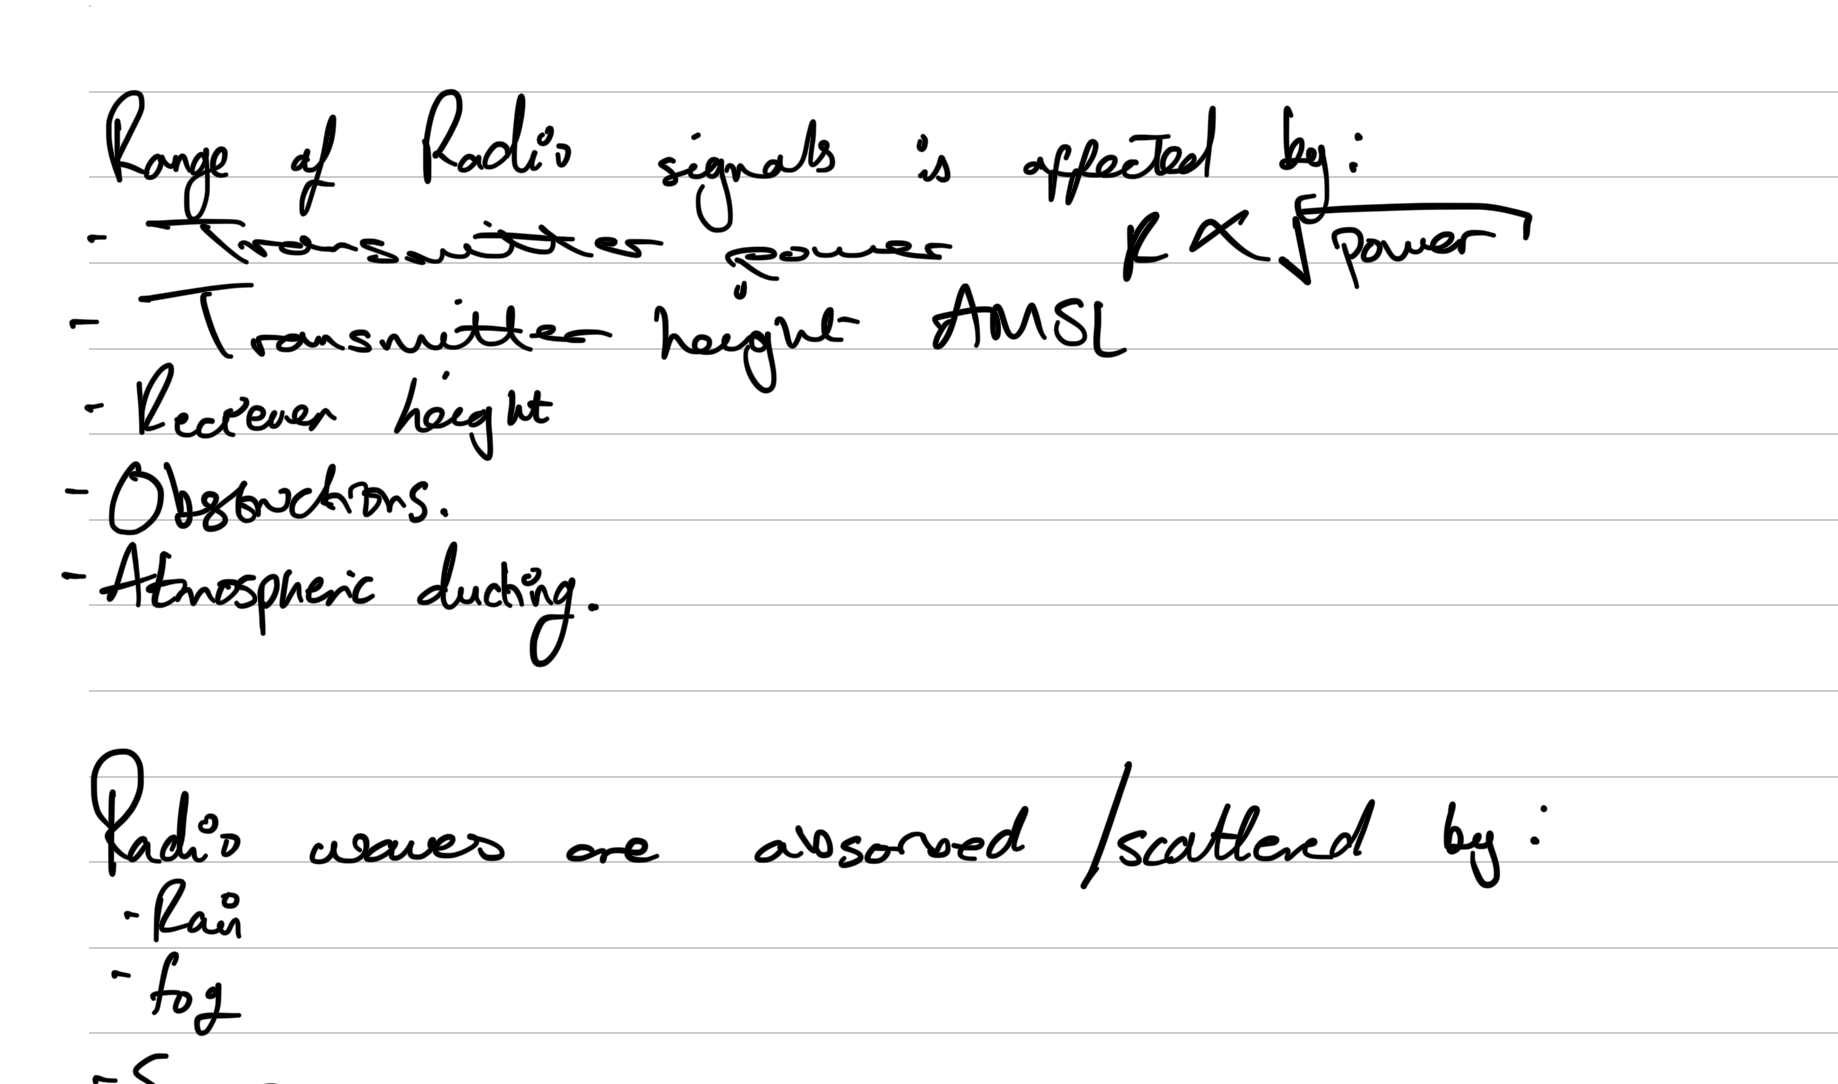 Range of Radio signals is affected by:
- Transmitter power R ∝ √power
- Transmitter height AMSL
- Reciever height
- Obstructions.
- Atmospheric ducting.
Radio waves are absorved /scattered by:
- Rain
- fog